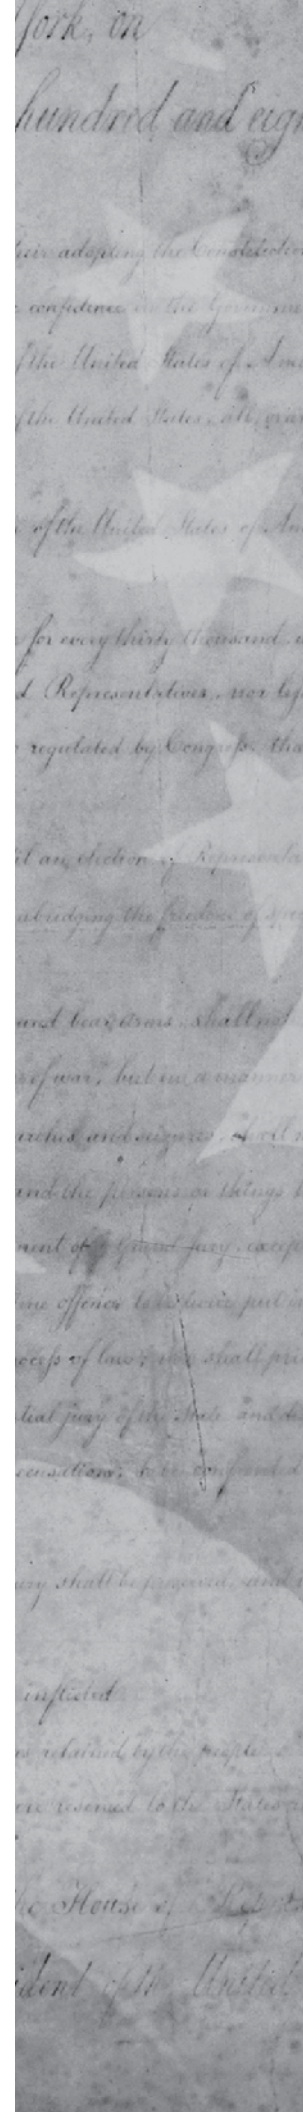 York, on
hundred and eigh
their adopting the Constitution
confidence in the Governme
f the United States of Ame
f the United States, all, or an
of the United States of Am
for every thirty thousand, u
d Representatives, nor les
regulated by Congress, tha
til an election of Representa
abridging the freedom of spee
and bear arms, shall not
of war, but in a manner
arches and seizures, shall n
and the persons or things t
ment of a Grand Jury, excep
ame offence to be twice put in
ocess of law; nor shall pri
tial jury of the State and di
ccusation; to be confronted
ury shall be preserved, and
inflicted
retained by the people
are reserved to the States
the House of Repres
ident of the United